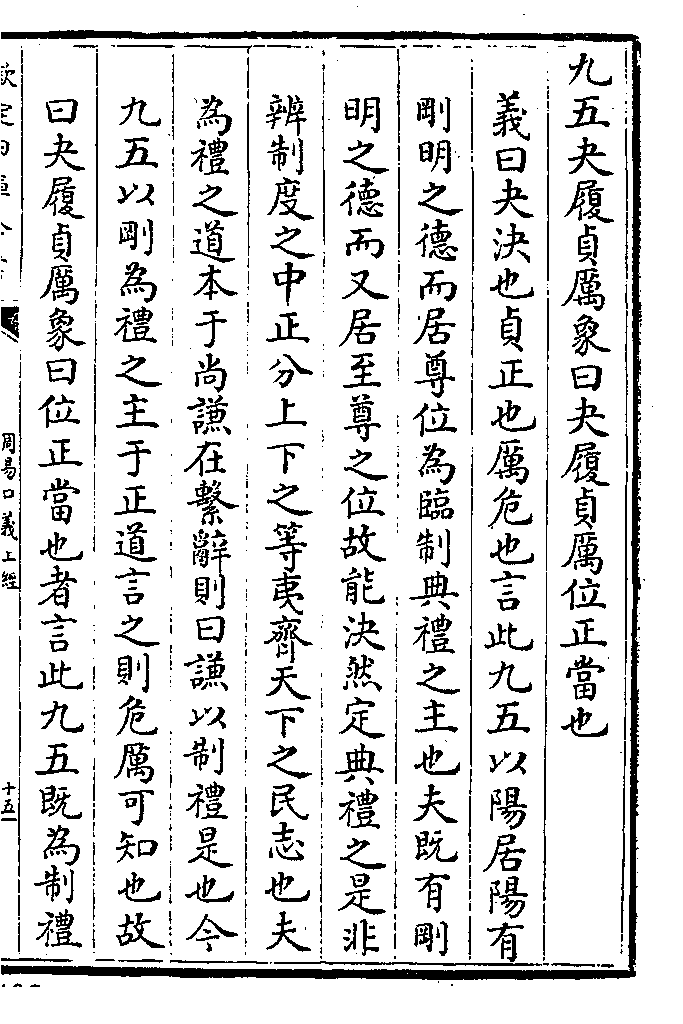 九五夬履貞厲象曰夬履貞厲位正當也
義曰夬決也貞正也厲危也言此九五以陽居陽有
剛明之德而居尊位為臨制典禮之主也夫既有剛
明之德而又居至尊之位故能決然定典禮之是非
辨制度之中正分上下之等夷齊天下之民志也夫
為禮之道本于尚謙在繫辭則曰謙以制禮是也今
九五以剛為禮之主于正道言之則危厲可知也故
曰夬履貞厲象曰位正當也者言此九五既為制禮
周易口義上經
十五